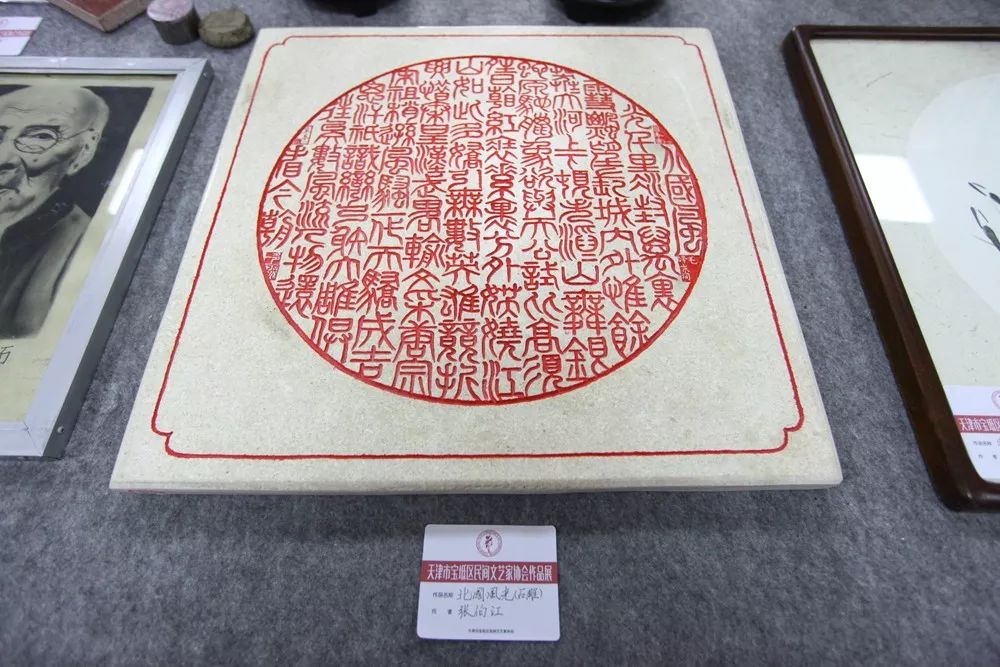 北國風
光千里冰封萬里
雪飄望長城內外惟餘
莽大河上下頓失滔山舞銀
蛇原馳蠟象欲與天公試比高須
晴日看紅裝素裹分外妖嬈江
山如此多嬌引無數英雄競折
腰惜秦皇漢武略輸文采唐宗
宋祖稍遜風騷一代天驕成吉
思汗祇識彎弓射大雕俱
往矣數風流人物還
看今朝
天津市宝坻区民间文艺家协会作品展
作品名称 北國風光(石雕)
作 者 张伯江
天津市宝坻区
作品名称
作 者